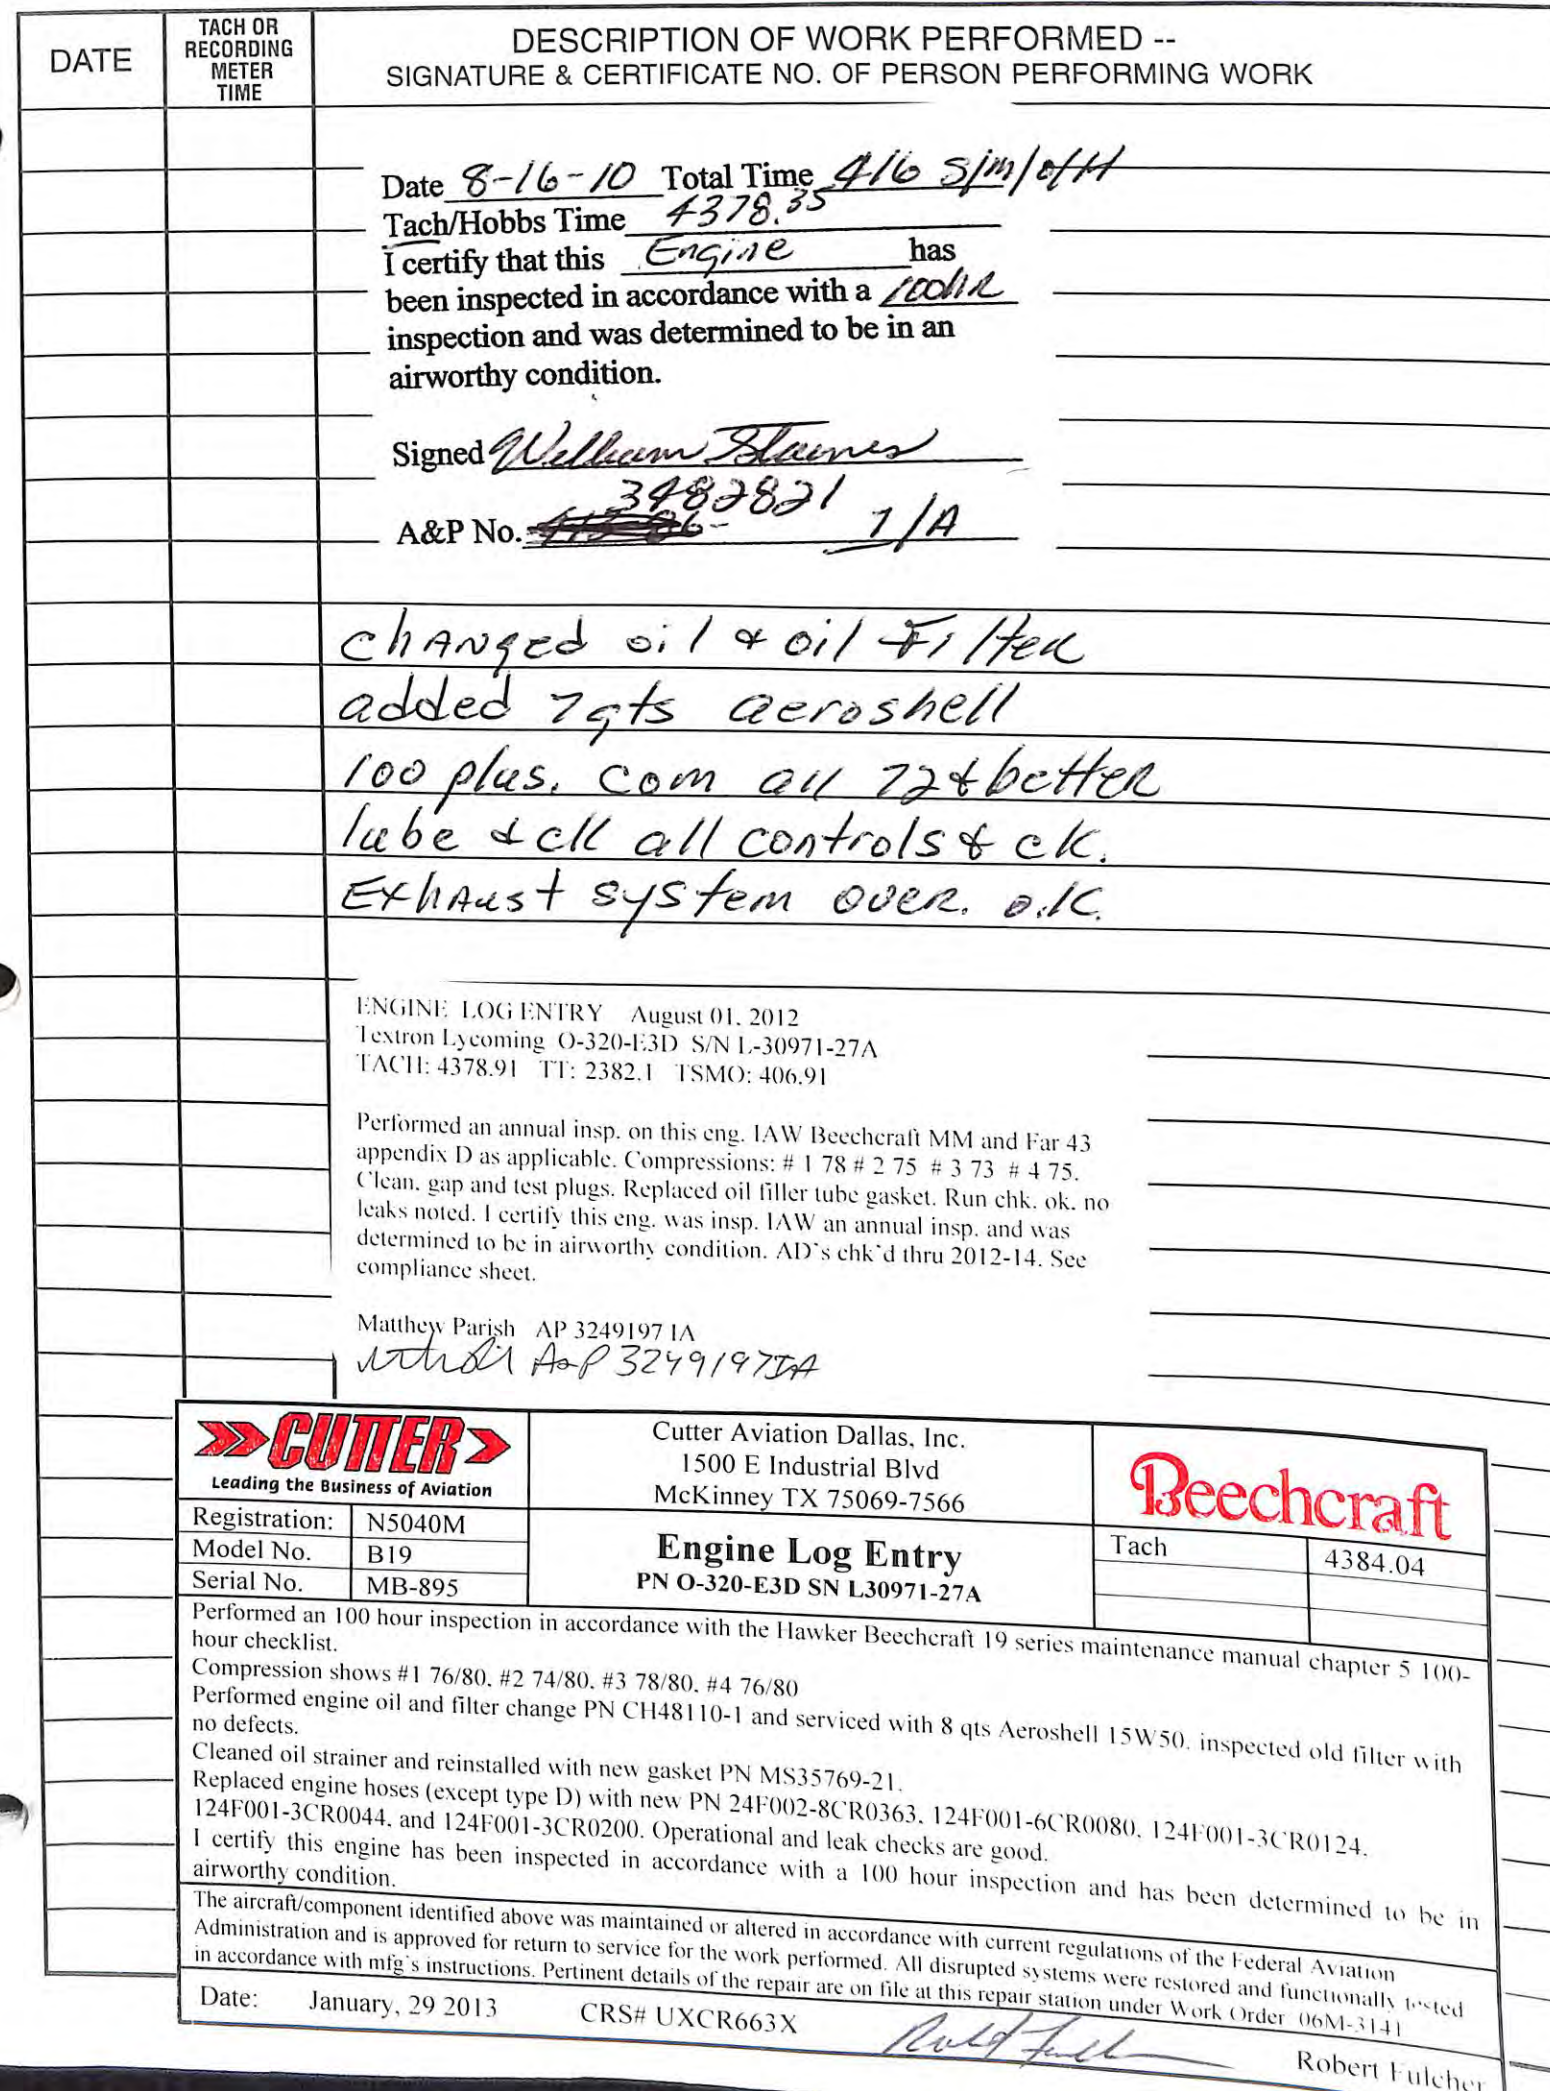 DATE
TACH OR
RECORDING
METER
TIME
DESCRIPTION OF WORK PERFORMED --
SIGNATURE & CERTIFICATE NO. OF PERSON PERFORMING WORK
Date 8-16-10 Total Time 416 S/m/oH
Tach/Hobbs Time 4378.35
I certify that this Engine has
been inspected in accordance with a 100hR
inspection and was determined to be in an
airworthy condition.
Signed William Staines
3482821
A&P No. I/A
changed oil & oil Filter
added 7qts aeroshell
100 plus. com all 72 & better
lube & ck all controls & ck.
Exhaust system over. o.k.
ENGINE LOG ENTRY August 01, 2012
Textron Lycoming O-320-E3D S/N L-30971-27A
TACH: 4378.91 TT: 2382.1 TSMO: 406.91
Performed an annual insp. on this eng. IAW Beechcraft MM and Far 43
appendix D as applicable. Compressions: # 1 78 # 2 75 # 3 73 # 4 75.
Clean, gap and test plugs. Replaced oil filler tube gasket. Run chk. ok. no
leaks noted. I certify this eng. was insp. IAW an annual insp. and was
determined to be in airworthy condition. AD's chk'd thru 2012-14. See
compliance sheet.
Matthew Parish AP 3249197 IA
A&P 3249197IA
CUTTER
Leading the Business of Aviation
Cutter Aviation Dallas, Inc.
1500 E Industrial Blvd
McKinney TX 75069-7566
Beechcraft
Registration: N5040M
Model No. B19
Serial No. MB-895
Engine Log Entry
PN O-320-E3D SN L30971-27A
Tach 4384.04
Performed an 100 hour inspection in accordance with the Hawker Beechcraft 19 series maintenance manual chapter 5 100-
hour checklist.
Compression shows #1 76/80, #2 74/80, #3 78/80, #4 76/80
Performed engine oil and filter change PN CH48110-1 and serviced with 8 qts Aeroshell 15W50, inspected old filter with
no defects.
Cleaned oil strainer and reinstalled with new gasket PN MS35769-21.
Replaced engine hoses (except type D) with new PN 24F002-8CR0363, 124F001-6CR0080, 124F001-3CR0124,
124F001-3CR0044, and 124F001-3CR0200. Operational and leak checks are good.
I certify this engine has been inspected in accordance with a 100 hour inspection and has been determined to be in
airworthy condition.
The aircraft/component identified above was maintained or altered in accordance with current regulations of the Federal Aviation
Administration and is approved for return to service for the work performed. All disrupted systems were restored and functionally tested
in accordance with mfg's instructions. Pertinent details of the repair are on file at this repair station under Work Order 06M-3141
Date: January, 29 2013 CRS# UXCR663X
Robert Fulcher